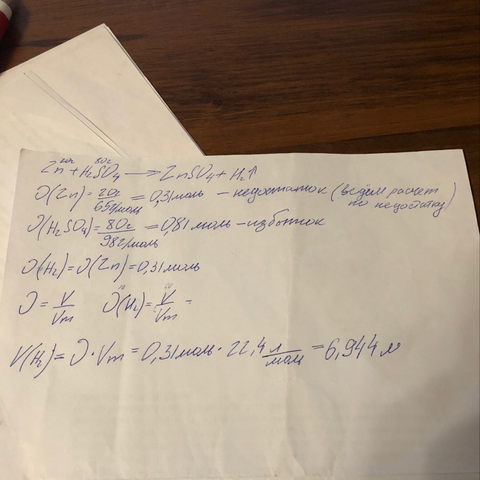 20г 80г
Zn + H₂SO₄ → ZnSO₄ + H₂↑
υ(Zn) = 20г / 65г/моль = 0,31 моль – недостаток (ведём расчет по недостатку)
υ(H₂SO₄) = 80г / 98г/моль = 0,81 моль – избыток
υ(H₂) = υ(Zn) = 0,31 моль
υ = V / Vm υ(H₂) = V / Vm =
V(H₂) = υ · Vm = 0,31 моль · 22,4 л/моль = 6,944 л